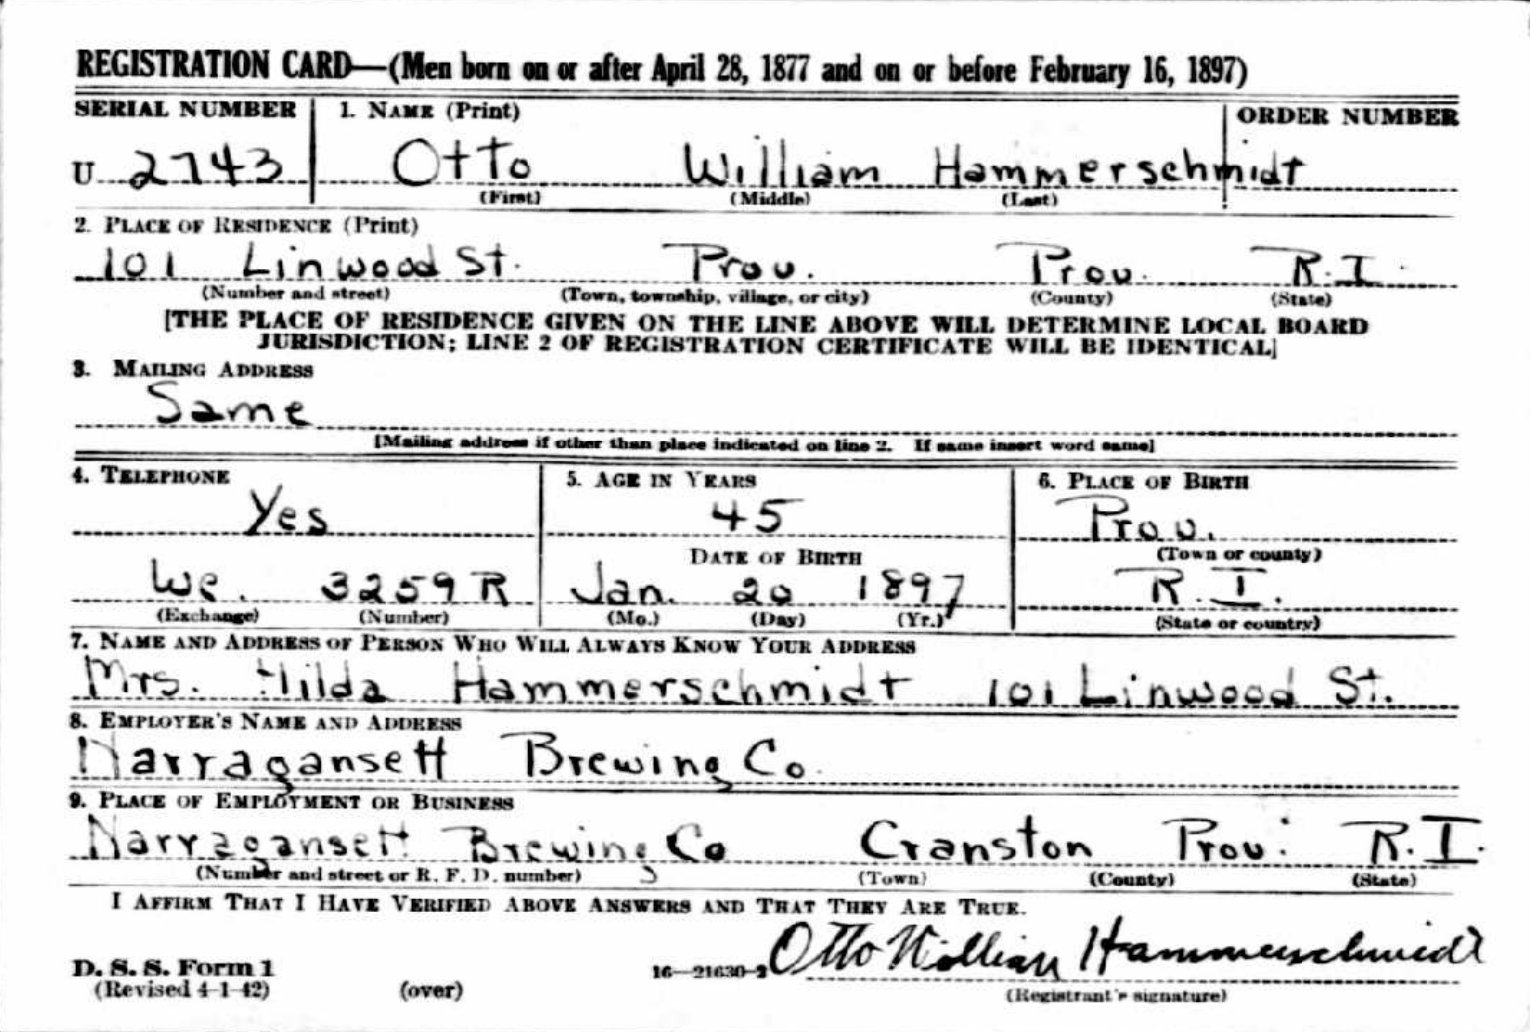 REGISTRATION CARD—(Men born on or after April 28, 1877 and on or before February 16, 1897)
SERIAL NUMBER 1. NAME (Print) ORDER NUMBER
U 2743 Otto William Hammerschmidt
(First) (Middle) (Last)
2. PLACE OF RESIDENCE (Print)
101 Linwood St. Prov. Prov. R.I.
(Number and street) (Town, township, village, or city) (County) (State)
[THE PLACE OF RESIDENCE GIVEN ON THE LINE ABOVE WILL DETERMINE LOCAL BOARD
JURISDICTION; LINE 2 OF REGISTRATION CERTIFICATE WILL BE IDENTICAL]
3. MAILING ADDRESS
Same
[Mailing address if other than place indicated on line 2. If same insert word same]
4. TELEPHONE 5. AGE IN YEARS 6. PLACE OF BIRTH
Yes 45 Prov.
DATE OF BIRTH (Town or county)
We. 3259R Jan. 20 1897 R.I.
(Exchange) (Number) (Mo.) (Day) (Yr.) (State or country)
7. NAME AND ADDRESS OF PERSON WHO WILL ALWAYS KNOW YOUR ADDRESS
Mrs. Hilda Hammerschmidt 101 Linwood St.
8. EMPLOYER'S NAME AND ADDRESS
Narragansett Brewing Co.
9. PLACE OF EMPLOYMENT OR BUSINESS
Narragansett Brewing Co Cranston Prov. R.I.
(Number and street or R. F. D. number) (Town) (County) (State)
I AFFIRM THAT I HAVE VERIFIED ABOVE ANSWERS AND THAT THEY ARE TRUE.
Otto William Hammerschmidt
D. S. S. Form 1 16—21630-2
(Revised 4-1-42) (over) (Registrant's signature)